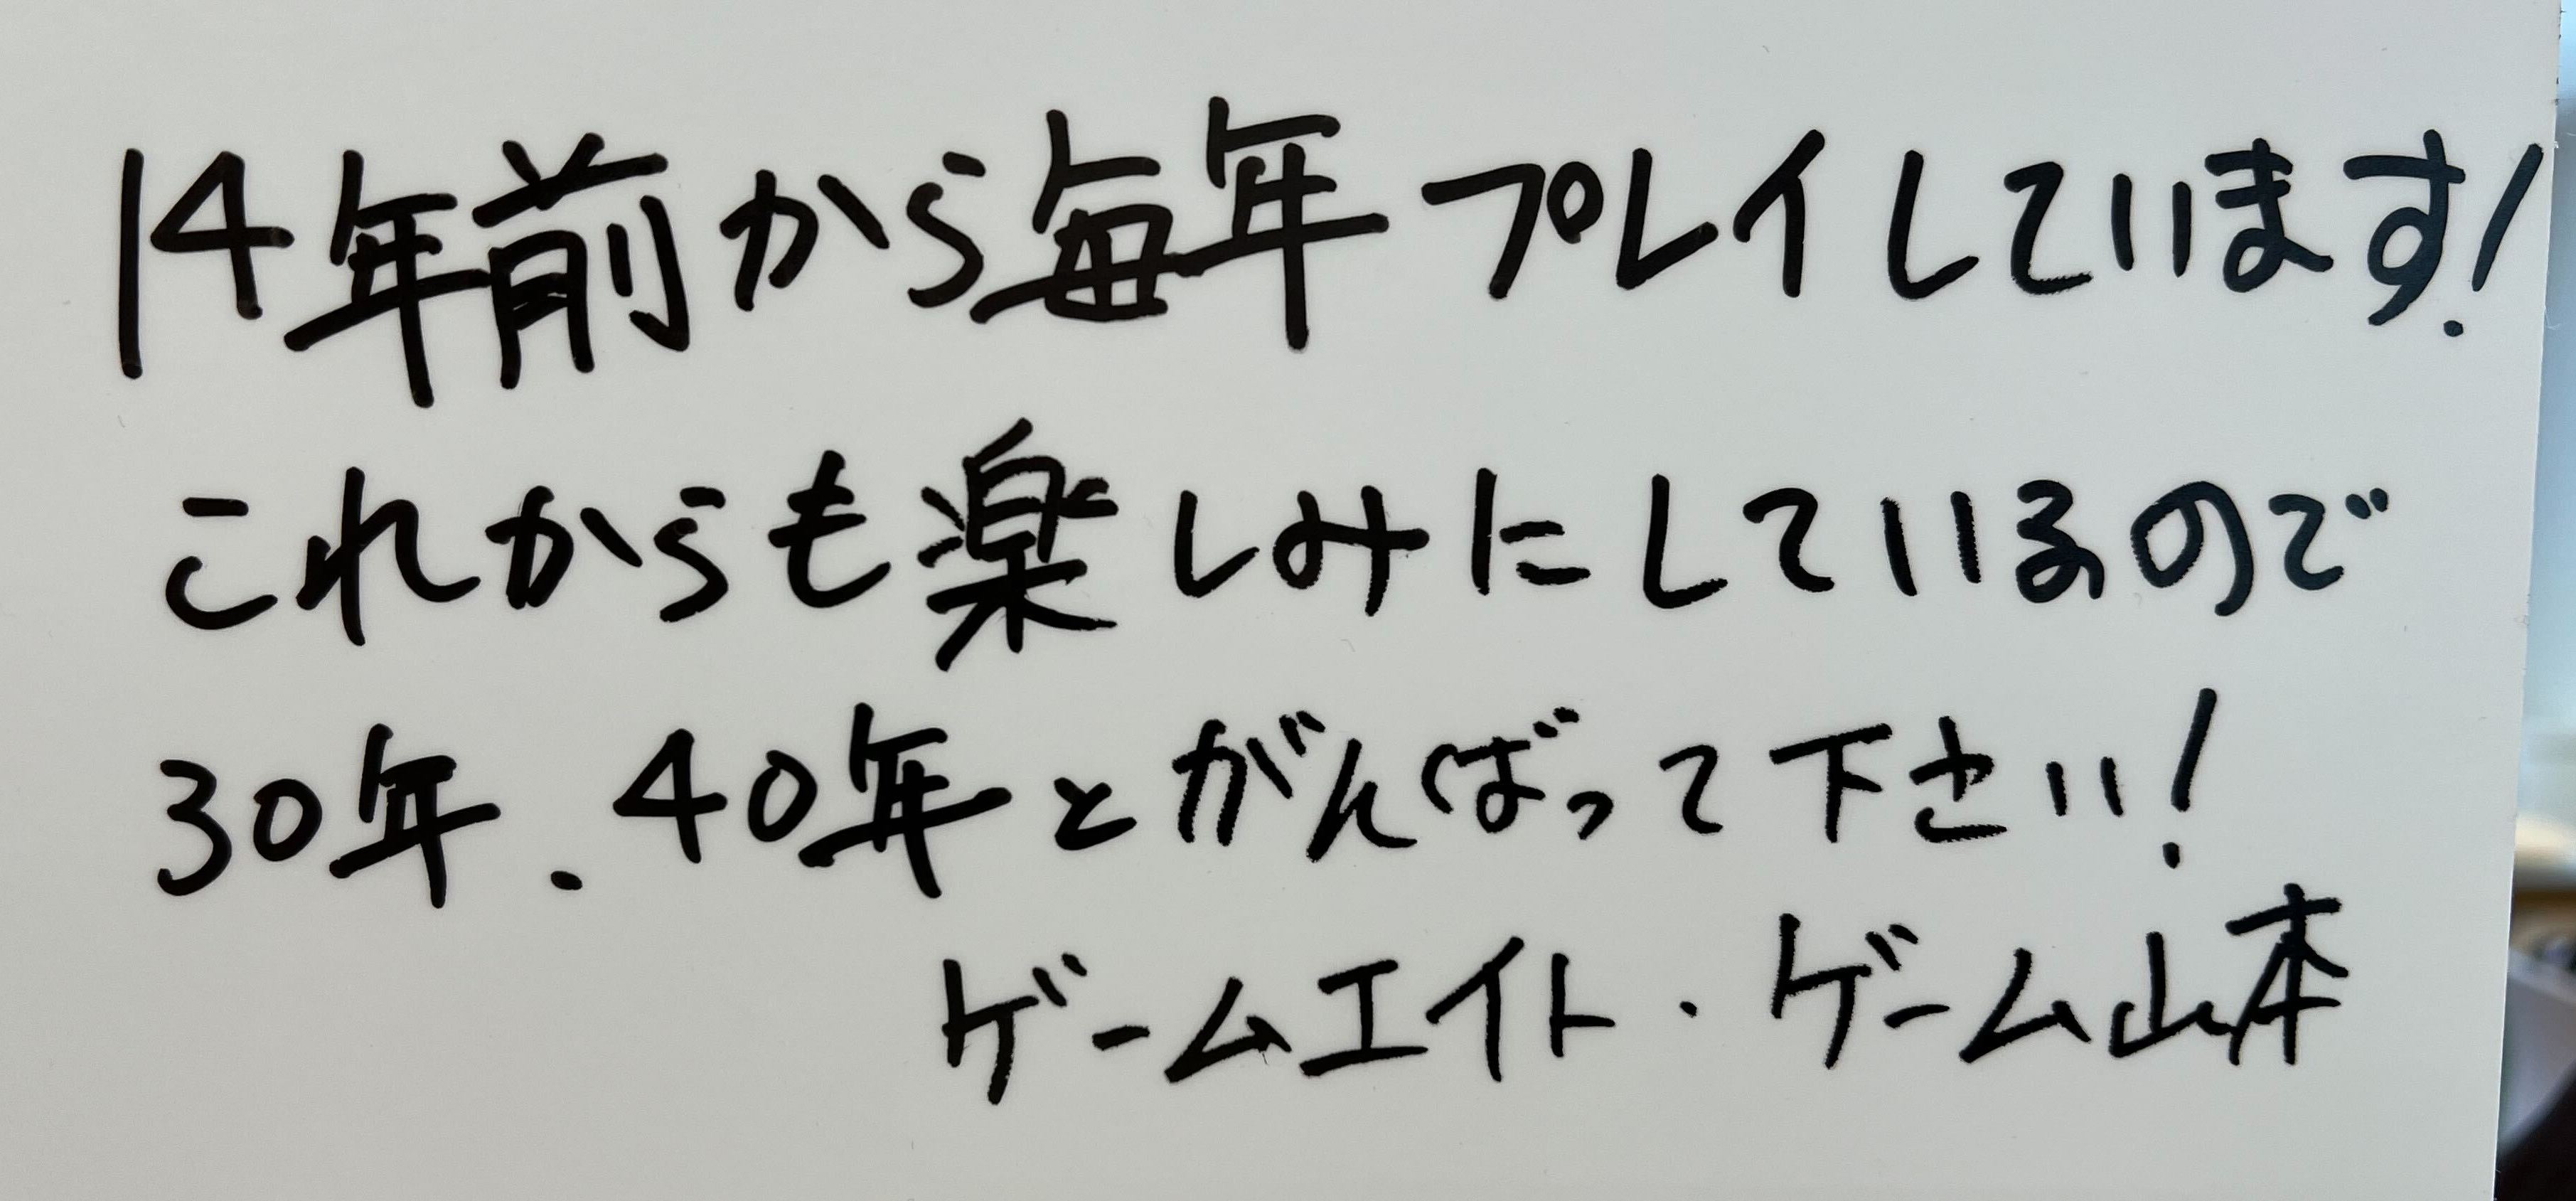 14年前から毎年プレイしています!
これからも楽しみにしているので
30年、40年とがんばって下さい!
ゲームエイト・ゲーム山本